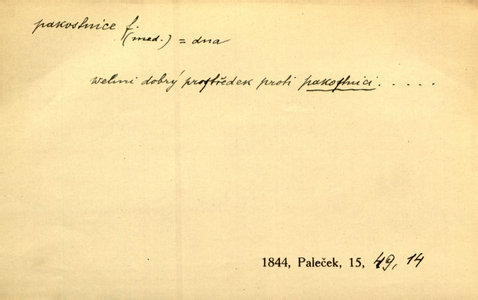 pakostnice f.
(med.) = dna
welmi dobrý prostředek proti pakostnici . . . . .
1844, Paleček, 15, 49, 14